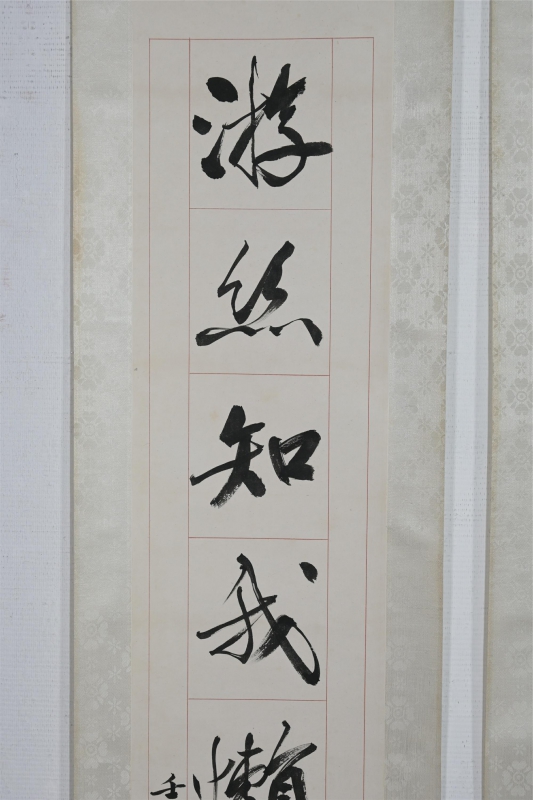 游丝知我懒
壬